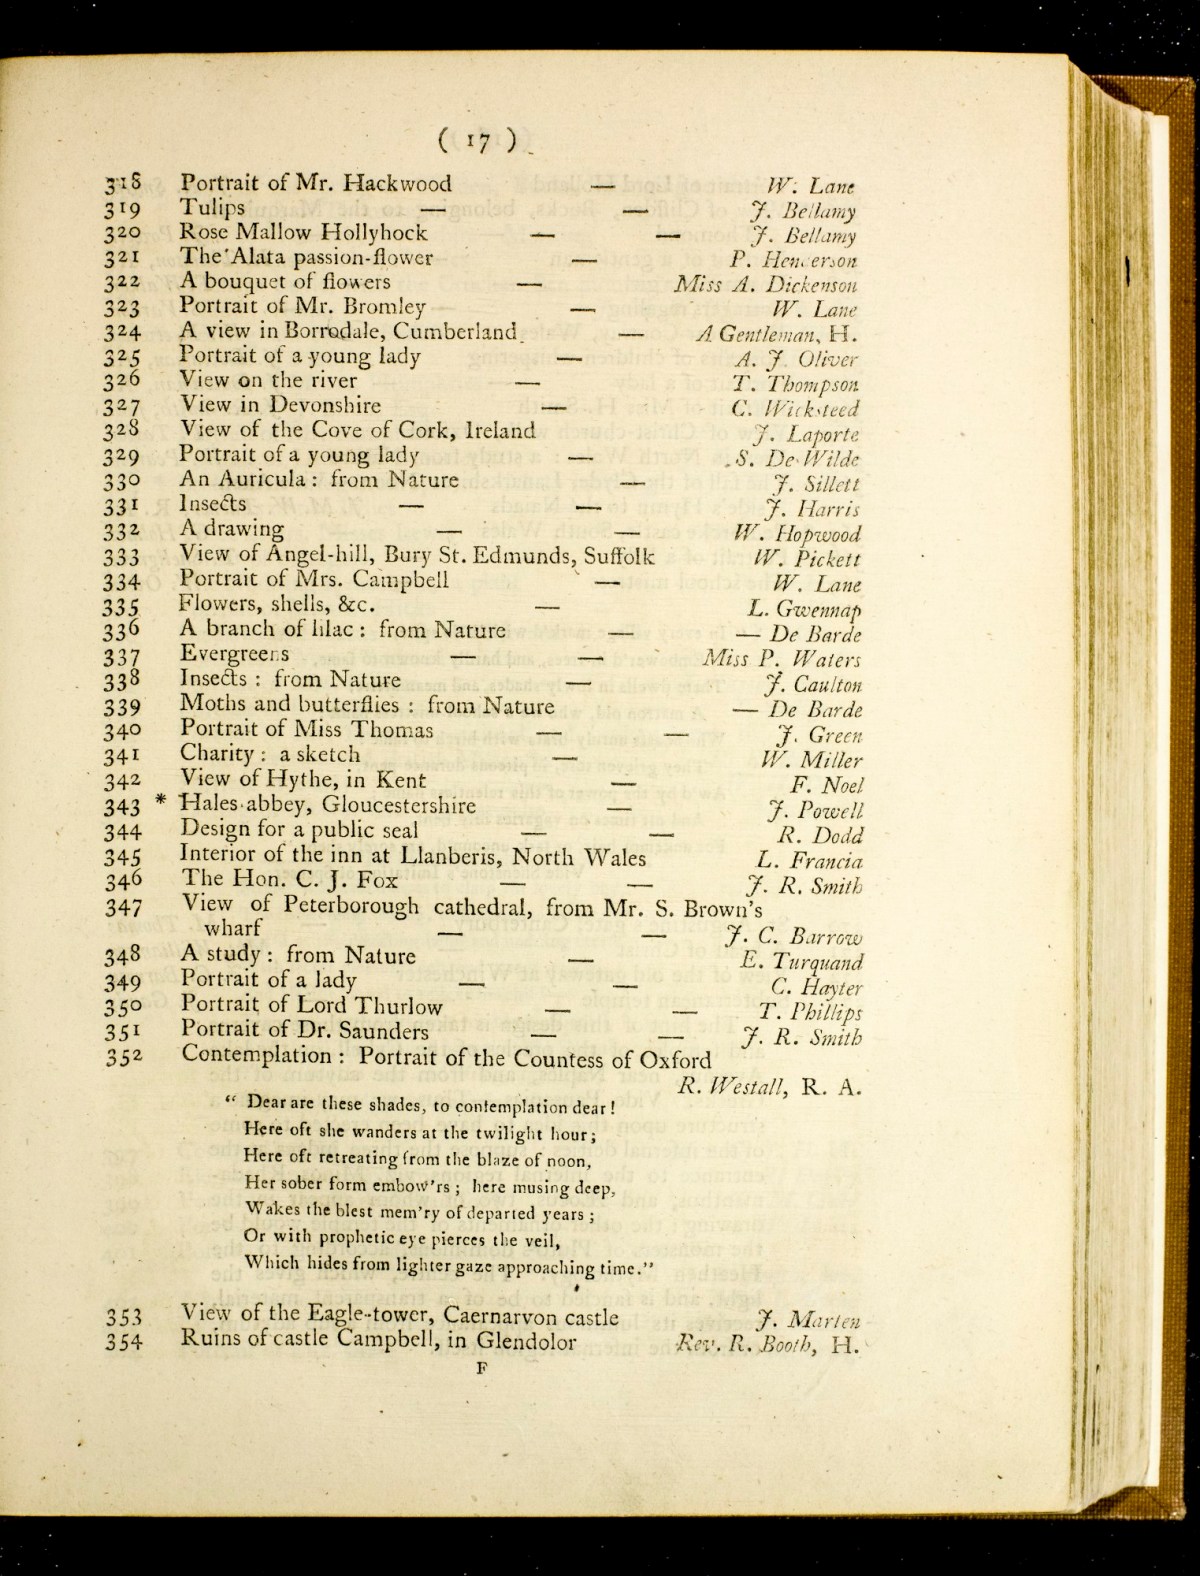 ( 17 )
318 Portrait of Mr. Hackwood — W. Lane
319 Tulips — — J. Bellamy
320 Rose Mallow Hollyhock — — J. Bellamy
321 The Alata passion-flower — P. Henderson
322 A bouquet of flowers — Miss A. Dickenson
323 Portrait of Mr. Bromley — W. Lane
324 A view in Borrodale, Cumberland — A Gentleman, H.
325 Portrait of a young lady — A. J. Oliver
326 View on the river — T. Thompson
327 View in Devonshire — C. Wicksteed
328 View of the Cove of Cork, Ireland J. Laporte
329 Portrait of a young lady — S. De Wilde
330 An Auricula : from Nature — J. Sillett
331 Insects — — J. Harris
332 A drawing — — W. Hopwood
333 View of Angel-hill, Bury St. Edmunds, Suffolk W. Pickett
334 Portrait of Mrs. Campbell — W. Lane
335 Flowers, shells, &c. — L. Gwennap
336 A branch of lilac : from Nature — — De Barde
337 Evergreens — — Miss P. Waters
338 Insects : from Nature — J. Caulton
339 Moths and butterflies : from Nature — De Barde
340 Portrait of Miss Thomas — — J. Green
341 Charity : a sketch — W. Miller
342 View of Hythe, in Kent — F. Noel
343 * Hales abbey, Gloucestershire — J. Powell
344 Design for a public seal — — R. Dodd
345 Interior of the inn at Llanberis, North Wales L. Francia
346 The Hon. C. J. Fox — — J. R. Smith
347 View of Peterborough cathedral, from Mr. S. Brown's
wharf — — J. C. Barrow
348 A study : from Nature — E. Turquand
349 Portrait of a lady — — C. Hayter
350 Portrait of Lord Thurlow — — T. Phillips
351 Portrait of Dr. Saunders — — J. R. Smith
352 Contemplation : Portrait of the Countess of Oxford
R. Westall, R. A.
“ Dear are these shades, to contemplation dear !
Here oft she wanders at the twilight hour ;
Here oft retreating from the blaze of noon,
Her sober form embow'rs ; here musing deep,
Wakes the blest mem'ry of departed years ;
Or with prophetic eye pierces the veil,
Which hides from lighter gaze approaching time.”
353 View of the Eagle-tower, Caernarvon castle J. Marten
354 Ruins of castle Campbell, in Glendolor Rev. R. Booth, H.
F